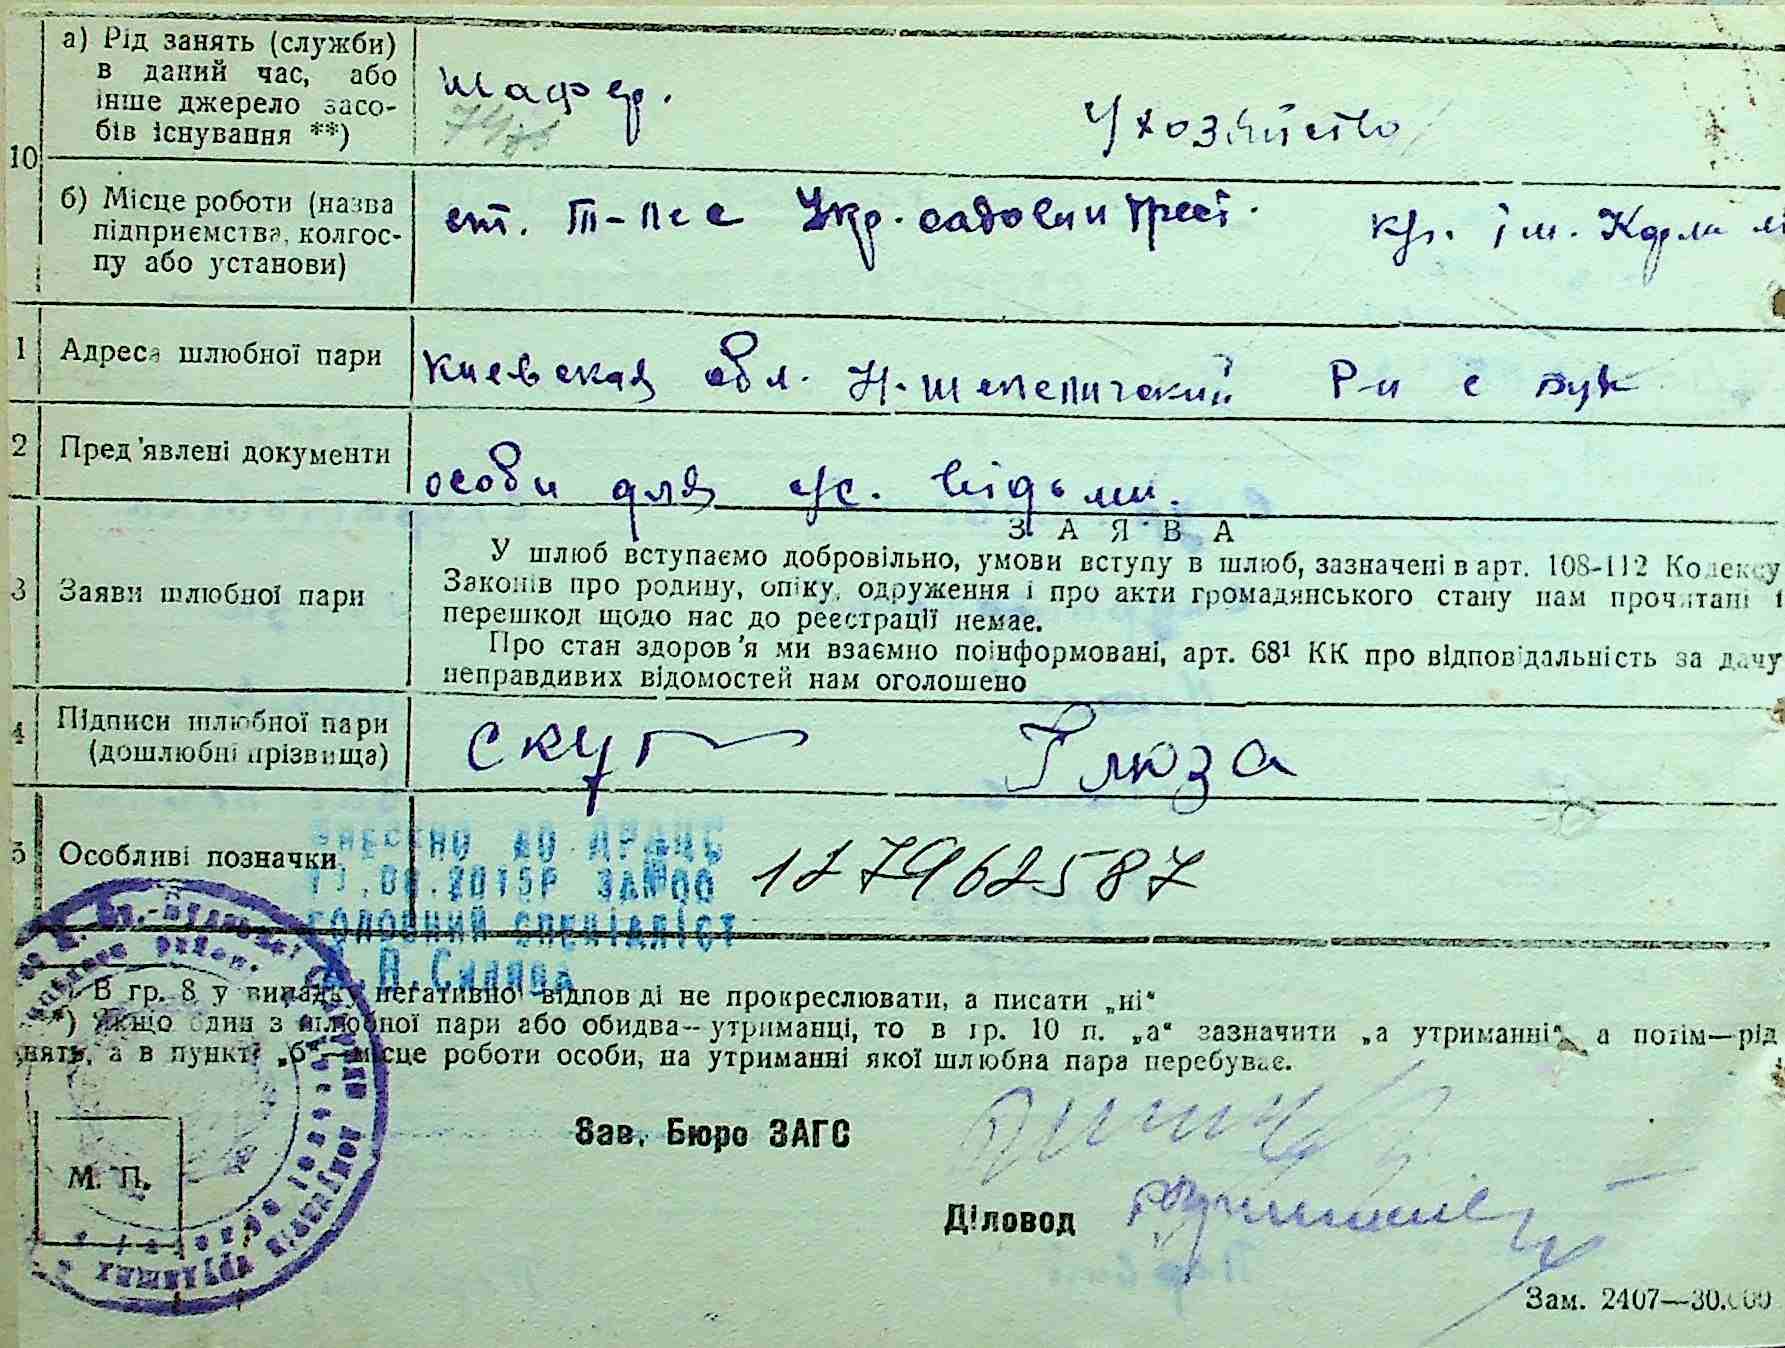 10
а) Рід занять (служби)
в даний час, або
інше джерело засо-
бів існування **)
шофер.
У хозяйство
б) Місце роботи (назва
підприємства, колгос-
пу або установи)
ст. Укр. садовинтрест.
ім. Карла
1 Адреса шлюбної пари
Киевская обл. Н-шепеличский Р-н с
2 Пред'явлені документи
особи для відьми.
ЗАЯВА
3 Заяви шлюбної пари
У шлюб вступаємо добровільно, умови вступу в шлюб, зазначені в арт. 108-112 Кодексу
Законів про родину, опіку, одруження і про акти громадянського стану нам прочитані і
перешкод щодо нас до реєстрації немає.
Про стан здоров'я ми взаємно поінформовані, арт. 68¹ КК про відповідальність за дачу
неправдивих відомостей нам оголошено
4 Підписи шлюбної пари
(дошлюбні прізвища)
Скут Глюза
5 Особливі позначки
Внесено до ДРАЦС
.2015р
головний спеціаліст
127962587
*) В гр. 8 у випадку негативної відповіді не прокреслювати, а писати „ні“
**) Якщо один з шлюбної пари або обидва—утриманці, то в гр. 10 п. „а“ зазначити „а утриманні“, а потім—рід
занять, а в пункті „б“—місце роботи особи, на утриманні якої шлюбна пара перебуває.
Зав. Бюро ЗАГС
М. П.
Діловод
Зам. 2407—30.000